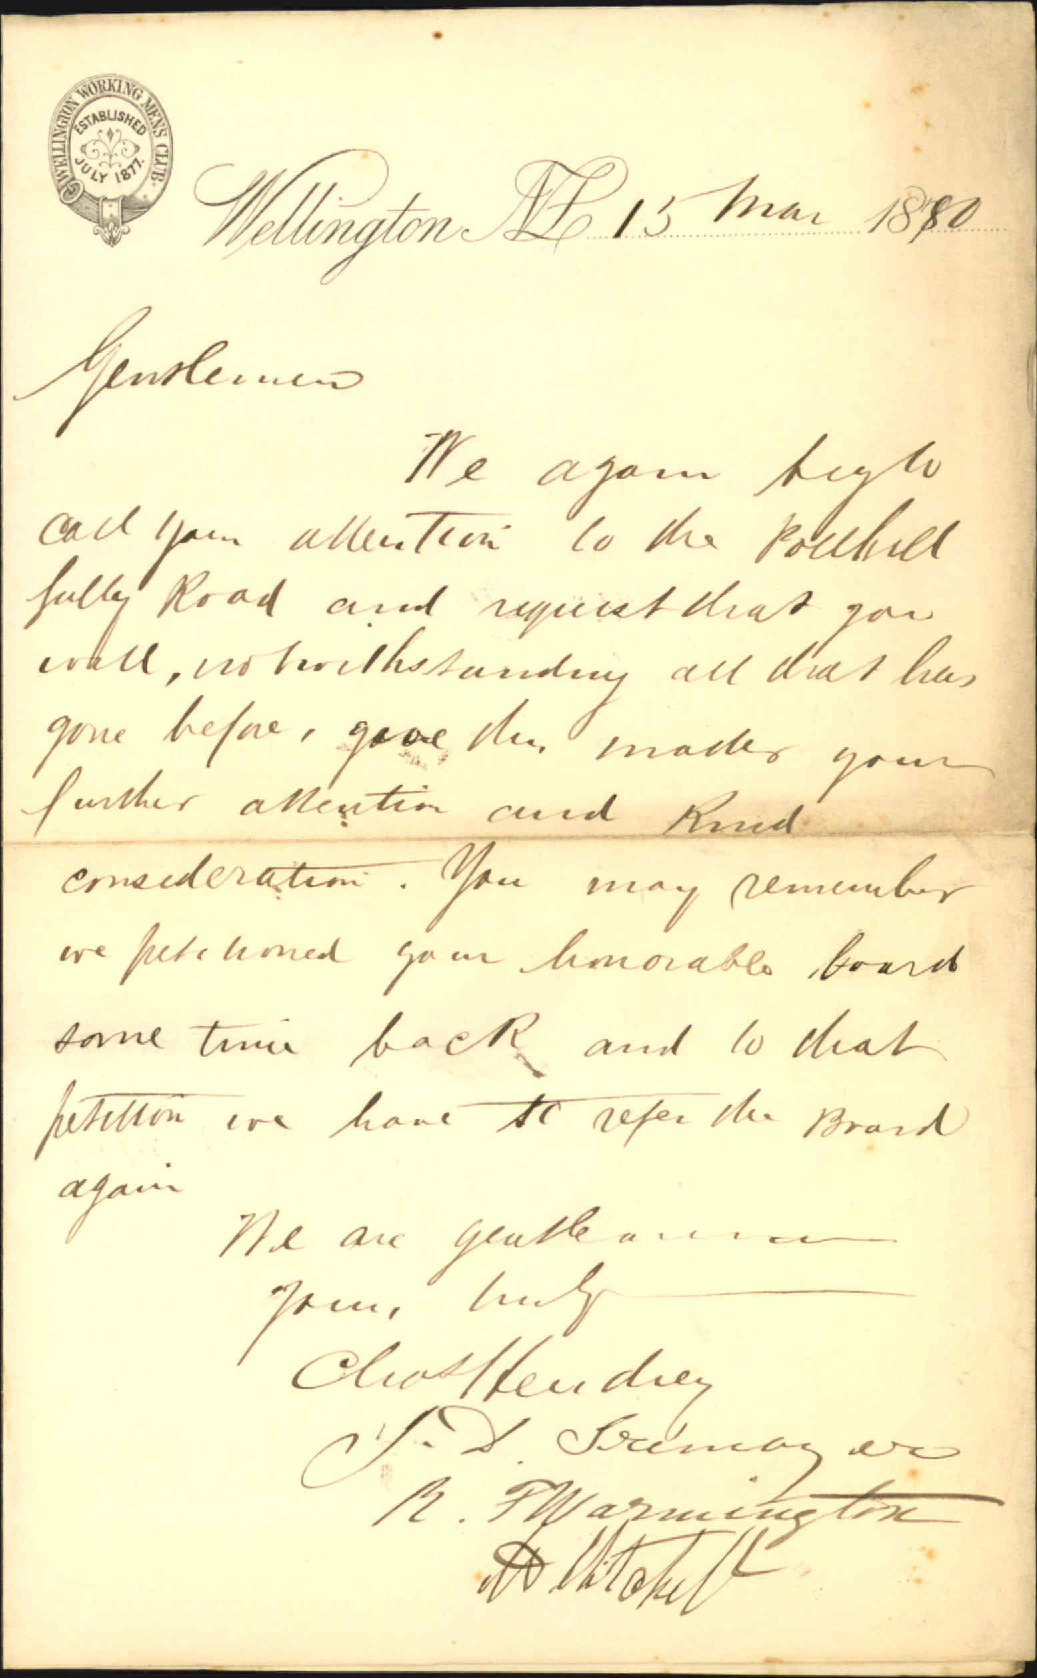 WELLINGTON WORKING MENS CLUB.
ESTABLISHED
JULY 1877.
Wellington NZ 15 Mar 1880
Gentlemen
We again beg to
call your attention to the Polhill
Gully Road and request that you
will, notwithstanding all that has
gone before, give this matter your
further attention and kind
consideration. You may remember
we petitioned your honorable board
some time back and to that
petition we have to refer the Board
again
We are gentlemen
Yours truly
Chas Hendrey
R. F Warmington
Mitchell